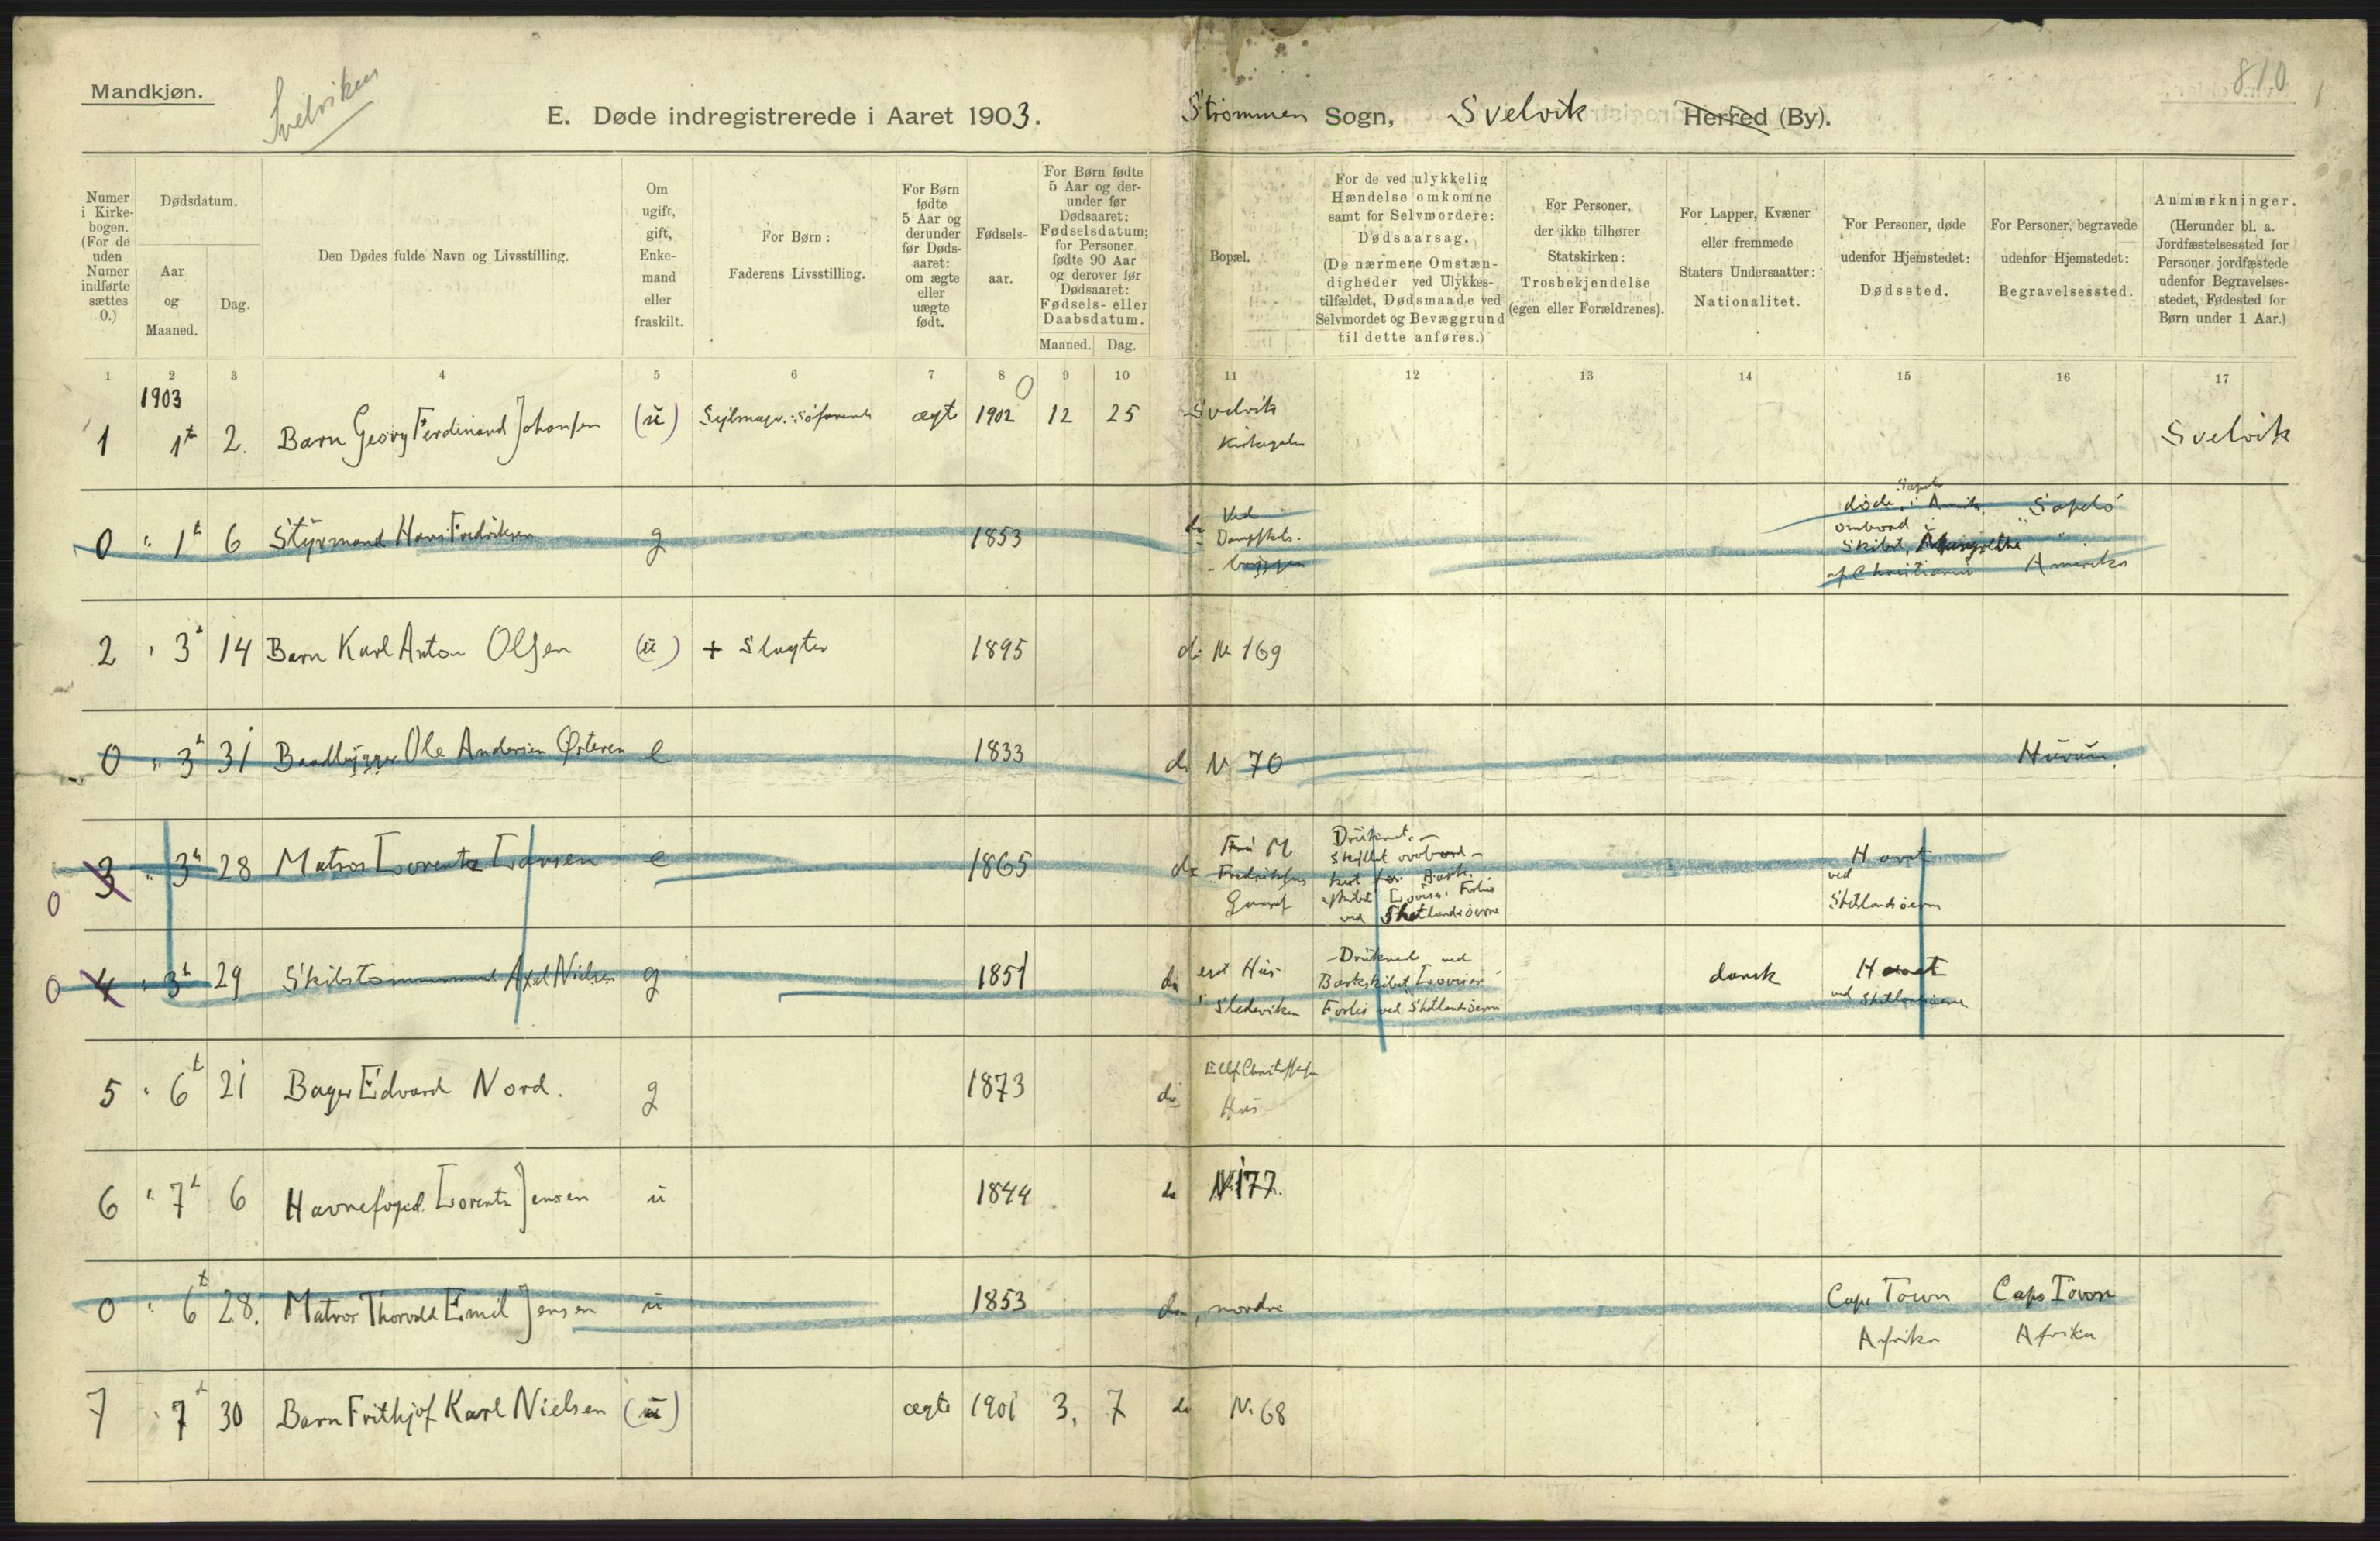 Mandkjøn.
Svelviken
E. Døde indregistrerede i Aaret 1903.
Strømmen Sogn, Svelvik Herred (By).
810
Numer i Kirkebogen. (For de uden Numer indførte sættes 0.)
Dødsdatum.
Aar og Maaned.
Dag.
Den Dødes fulde Navn og Livsstilling.
Om ugift, gift, Enkemand eller fraskilt.
For Børn: Faderens Livsstilling.
For Børn fødte 5 Aar og derunder før Dødsaaret: om ægte eller uægte født.
Fødselsaar.
For Børn fødte 5 Aar og derunder før Dødsaaret: Fødselsdatum; for Personer fødte 90 Aar og derover før Dødsaaret: Fødsels- eller Daabsdatum.
Maaned. Dag.
Bopæl.
For de ved ulykkelig Hændelse omkomne samt for Selvmordere: Dødsaarsag. (De nærmere Omstændigheder ved Ulykkestilfældet, Dødsmaade ved Selvmordet og Bevæggrund til dette anføres.)
For Personer, der ikke tilhører Statskirken: Trosbekjendelse (egen eller Forældrenes).
For Lapper, Kvæner eller fremmede Staters Undersaatter: Nationalitet.
For Personer, døde udenfor Hjemstedet: Dødssted.
For Personer, begravede udenfor Hjemstedet: Begravelsessted.
Anmærkninger. (Herunder bl. a. Jordfæstelsessted for Personer jordfæstede udenfor Begravelsesstedet, Fødested for Børn under 1 Aar.)
1 2 3 4 5 6 7 8 9 10 11 12 13 14 15 16 17
1903
1 1t 2. Barn Georg Ferdinand Johansen (u) ægte 1902 12 25 Svelvik Svelvik
0 " 1t 6 Styrmand Hans Fredriksen g 1853 do Ved
Dampskibs-
bryggen
døde i
ombord i
Skibet, Margrethe
af Christiania
Amerika
2 " 3t 14 Barn Karl Anton Olsen (u) + Slagter 1895 do No 169
0 " 3t 31 Baadbygger Ole Andersen Østeren e 1833 do N 70 Hurum.
0 3 " 3t 28 Matros Lorentz Larsen e 1865 do Fru M
Gaard
Druknet.
ved Shetlandsøerne
Havet
ved
Shetlandsøerne
0 4 " 3t 29 Skibstømmermand Axel Nielsen g 1851 do Hus
i Stedeviken
Druknede ved
Barkskibet Lovises
Forlis ved Shetlandsøerne
dansk
Havet
ved Shetlandsøerne
5 " 6t 21 Bager Edvard Nord. g 1873 do
Hus
6 " 7t 6 Havnefoged Lorentz Jensen u 1844 do N 177.
0 " 6t 28. Matros Thorvald Emil Jensen u 1853 do, nordre Cape Town Cape Town
Afrika Afrika
7 " 7t 30 Barn Frithjof Karl Nielsen (u) ægte 1901 3, 7 do N. 68